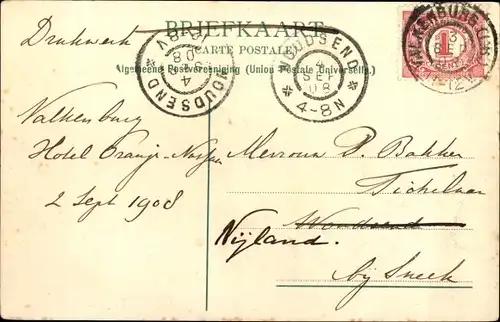 BRIEFKAART
(CARTE POSTALE)
Algemeene Postvereeniging (Union Postale Universelle.)
Drukwerk
WOUDSEND
4 SEP 08
4-8V
WOUDSEND
4 SEP 08
4-8N
VALKENBURG (L)
3 SEP
1
Valkenburg
Hotel Oranje-Nassau
2 Sept 1908
Mevrouw P. Bakker
Tichelaar
Woudsend
Nijland.
bij Sneek